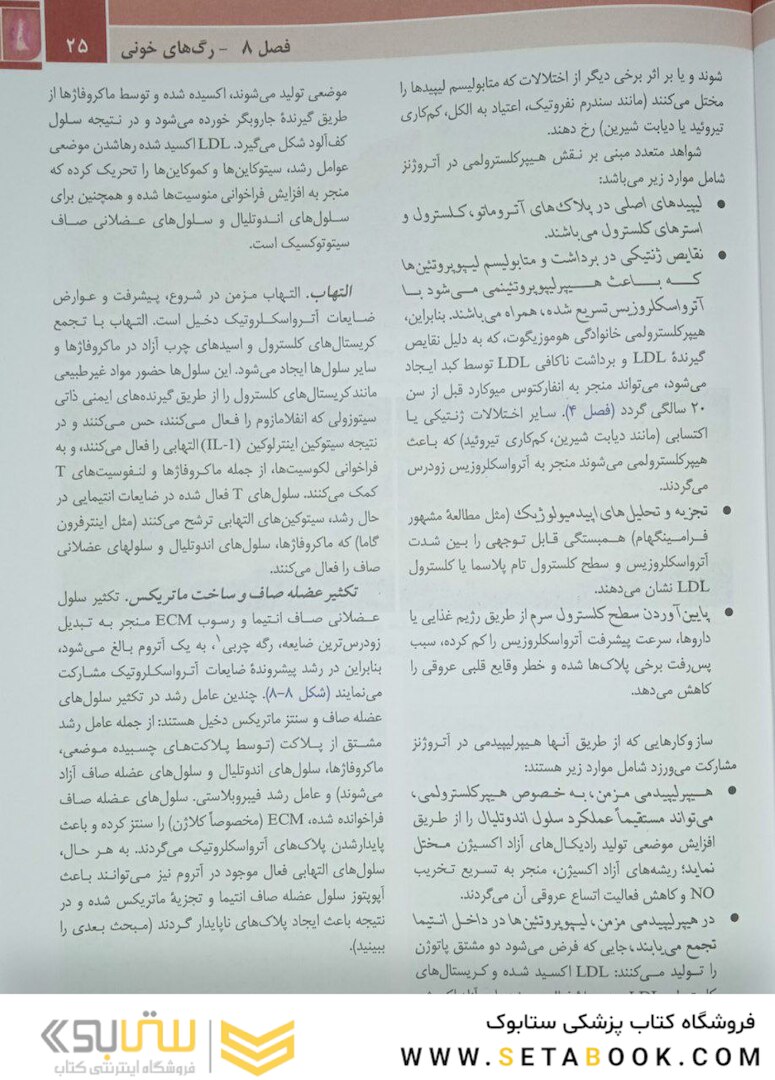 ۲۵
فصل ۸ - رگ‌های خونی
شوند و یا بر اثر برخی دیگر از اختلالات که متابولیسم لیپیدها را
مختل می‌کنند (مانند سندرم نفروتیک، اعتیاد به الکل، کم‌کاری
تیروئید یا دیابت شیرین) رخ دهند.
شواهد متعدد مبنی بر نقش هیپرکلسترولمی در آتروژنز
شامل موارد زیر می‌باشد:
● لیپیدهای اصلی در پلاک‌های آتروماتو، کلسترول و
استرهای کلسترول می‌باشند.
● نقایص ژنتیکی در برداشت و متابولیسم لیپوپروتئین‌ها
که باعث هیپرلیپوپروتئینمی می‌شود با
آترواسکلروزیس تسریع شده، همراه می‌باشند. بنابراین،
هیپرکلسترولمی خانوادگی هوموزیگوت، که به دلیل نقایص
گیرندهٔ LDL و برداشت ناکافی LDL توسط کبد ایجاد
می‌شود، می‌تواند منجر به انفارکتوس میوکارد قبل از سن
۲۰ سالگی گردد (فصل ۴). سایر اختلالات ژنتیکی یا
اکتسابی (مانند دیابت شیرین، کم‌کاری تیروئید) که باعث
هیپرکلسترولمی می‌شوند منجر به آترواسکلروزیس زودرس
می‌گردند.
● تجزیه و تحلیل‌های اپیدمیولوژیک (مثل مطالعهٔ مشهور
فرامینگهام) همبستگی قابل توجهی را بین شدت
آترواسکلروزیس و سطح کلسترول تام پلاسما یا کلسترول
LDL نشان می‌دهند.
● پایین آوردن سطح کلسترول سرم از طریق رژیم غذایی یا
داروها، سرعت پیشرفت آترواسکلروزیس را کم کرده، سبب
پس‌رفت برخی پلاک‌ها شده و خطر وقایع قلبی عروقی را
کاهش می‌دهد.
سازوکارهایی که از طریق آنها هیپرلیپیدمی در آتروژنز
مشارکت می‌ورزد شامل موارد زیر هستند:
● هیپرلیپیدمی مزمن، به خصوص هیپرکلسترولمی،
می‌تواند مستقیماً عملکرد سلول اندوتلیال را از طریق
افزایش موضعی تولید رادیکال‌های آزاد اکسیژن مختل
نماید؛ ریشه‌های آزاد اکسیژن، منجر به تسریع تخریب
NO و کاهش فعالیت اتساع عروقی آن می‌گردند.
● در هیپرلیپیدمی مزمن، لیپوپروتئین‌ها در داخل انتیما
تجمع می‌یابند، جایی که فرض می‌شود دو مشتق پاتوژن
را تولید می‌کنند: LDL اکسید شده و کریستال‌های
موضعی تولید می‌شوند، اکسیده شده و توسط ماکروفاژها از
طریق گیرندهٔ جاروبگر خورده می‌شود و در نتیجه سلول
کف‌آلود شکل می‌گیرد. LDL اکسید شده رهاشدن موضعی
عوامل رشد، سیتوکاین‌ها و کموکاین‌ها را تحریک کرده که
منجر به افزایش فراخوانی منوسیت‌ها شده و همچنین برای
سلول‌های اندوتلیال و سلول‌های عضلانی صاف
سیتوتوکسیک است.
التهاب. التهاب مزمن در شروع، پیشرفت و عوارض
ضایعات آترواسکلروتیک دخیل است. التهاب با تجمع
کریستال‌های کلسترول و اسیدهای چرب آزاد در ماکروفاژها و
سایر سلول‌ها ایجاد می‌شود. این سلول‌ها حضور مواد غیرطبیعی
مانند کریستال‌های کلسترول را از طریق گیرنده‌های ایمنی ذاتی
سیتوزولی که انفلامازوم را فعال می‌کنند، حس می‌کنند و در
نتیجه سیتوکین اینترلوکین (IL-1) التهابی را فعال می‌کنند، و به
فراخوانی لکوسیت‌ها، از جمله ماکروفاژها و لنفوسیت‌های T
کمک می‌کنند. سلول‌های T فعال شده در ضایعات انتیمایی در
حال رشد، سیتوکین‌های التهابی ترشح می‌کنند (مثل اینترفرون
گاما) که ماکروفاژها، سلول‌های اندوتلیال و سلولهای عضلانی
صاف را فعال می‌کنند.
تکثیر عضله صاف و ساخت ماتریکس. تکثیر سلول
عضلانی صاف انتیما و رسوب ECM منجر به تبدیل
زودرس‌ترین ضایعه، رگه چربی۱، به یک آتروم بالغ می‌شود،
بنابراین در رشد پیشروندهٔ ضایعات آترواسکلروتیک مشارکت
می‌نمایند (شکل ۸-۸). چندین عامل رشد در تکثیر سلول‌های
عضله صاف و سنتز ماتریکس دخیل هستند: از جمله عامل رشد
مشتق از پلاکت (توسط پلاکت‌های چسبیده موضعی،
ماکروفاژها، سلول‌های اندوتلیال و سلول‌های عضله صاف آزاد
می‌شوند) و عامل رشد فیبروبلاستی. سلول‌های عضله صاف
فراخوانده شده، ECM (مخصوصاً کلاژن) را سنتز کرده و باعث
پایدارشدن پلاک‌های آترواسکلروتیک می‌گردند. به هر حال،
سلول‌های التهابی فعال موجود در آتروم نیز می‌توانند باعث
آپوپتوز سلول عضله صاف انتیما و تجزیهٔ ماتریکس شده و در
نتیجه باعث ایجاد پلاک‌های ناپایدار گردند (مبحث بعدی را
ببینید).
فروشگاه کتاب پزشکی ستابوک
WWW.SETABOOK.COM
ستابوک
فروشگاه اینترنتی کتاب